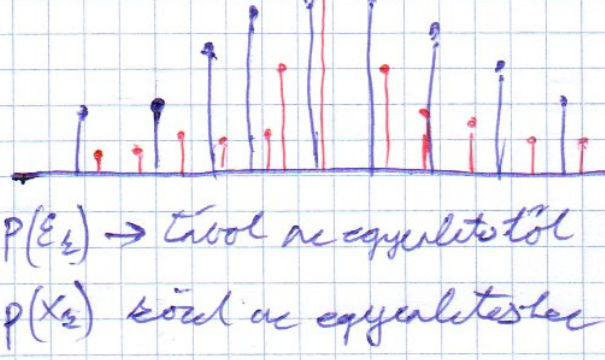 p(ξ_k) → távol az egyenletestől
p(x_k) közel az egyenleteshez